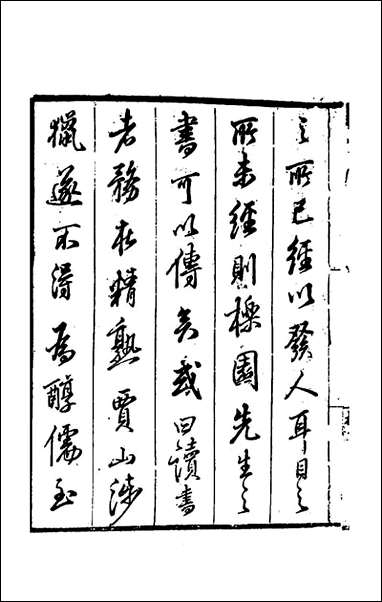 之所已經以發人耳目之
所未經則櫟園先生之
書可以傳矣或曰讀書
者務在精熟賈山涉
獵遂不得為醇儒至